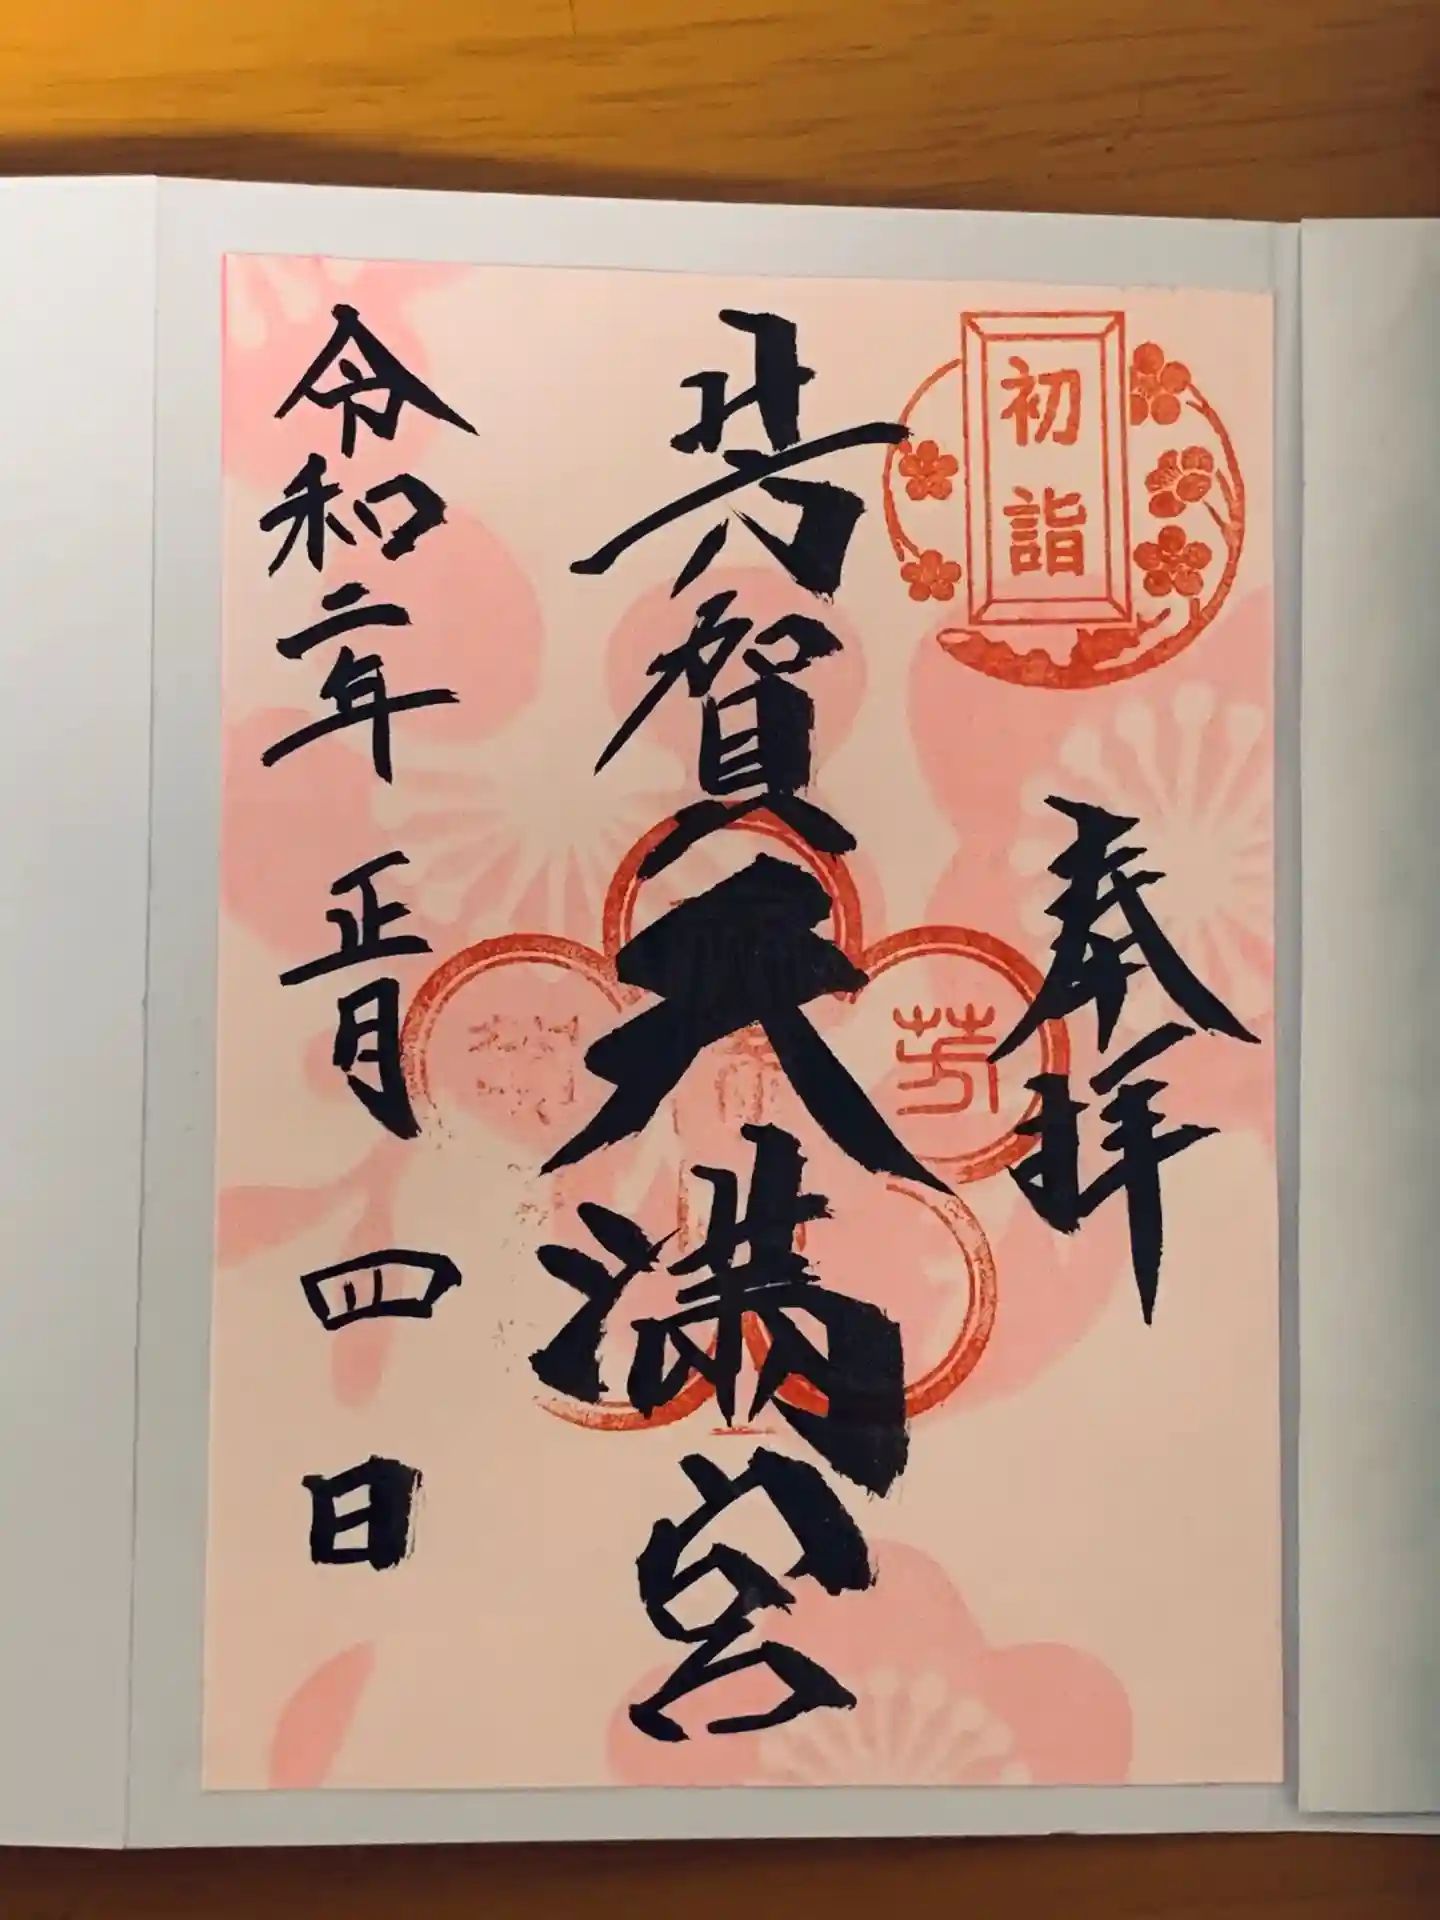 初詣
奉拝
芳賀天満宮
芳
令和二年正月四日